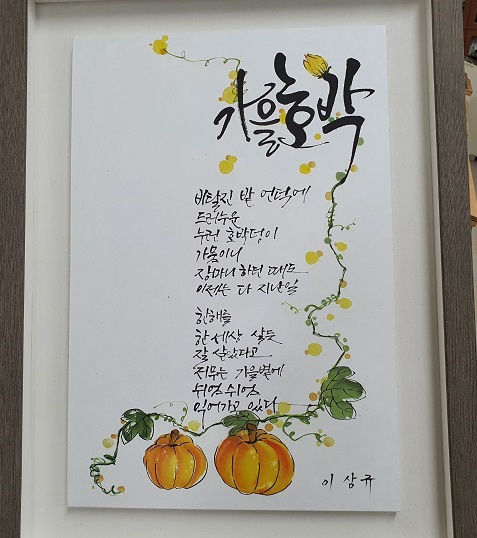 가을호박
비탈진 밭 언덕에
드러누운
누런 호박덩이
가뭄이니
장마니 하던 때도
이제는 다 지난일
한해를
한세상 살듯
잘 살았다고
저무는 가을볕에
쉬엄쉬엄
익어가고 있다
이상규